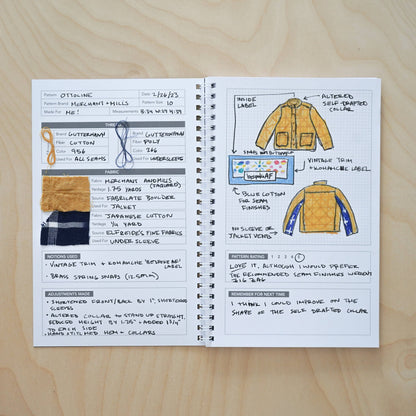 Pattern: OTTOLINE
Date: 2/26/23
Pattern Brand: MERCHANT + MILLS
Pattern Size: 10
Made For: ME!
Measurements:
THREAD
Brand GUTTERMANN
Fiber COTTON
Color 956
Used For ALL SEAMS
Brand GUTTERMANN
Fiber POLY
Color 266
Used For UNDERSLEEVE
FABRIC
Fabric MERCHANT AND MILLS
(JAQUARD)
Yardage 1.75 YARDS
Source FABRICATE BOULDER
Used For JACKET
Fabric JAPANESE COTTON
Yardage 1/4 YARD
Source ELFRIEDE'S FINE FABRICS
Used For UNDER SLEEVE
NOTIONS USED
- VINTAGE TRIM + KOMHACHE BESPOKE AF
LABEL
- BRASS SPRING SNAPS (12.5mm)
ADJUSTMENTS MADE
- SHORTENED FRONT/BACK BY 1", SHORTENED
SLEEVES
- ALTERED COLLAR TO STAND UP STRAIGHT.
REDUCED HEIGHT BY 1.25" + ADDED 1 3/4"
TO EACH SIDE
- HAND STITCHED HEM + COLLARS
INSIDE
LABEL
ALTERED
SELF-DRAFTED
COLLAR
BespokeAF
VINTAGE TRIM
+ KOMHACHE LABEL
BLUE COTTON
FOR SEAM
FINISHES
NO SLEEVE OR
JACKET VENTS
PATTERN RATING
1 2 3 4 5
LOVE IT, ALTHOUGH I WOULD PREFER
THE RECOMMENDED SEAM FINISHES WEREN'T
BIAS
REMEMBER FOR NEXT TIME
I THINK I COULD IMPROVE ON THE
SHAPE OF THE SELF DRAFTED COLLAR